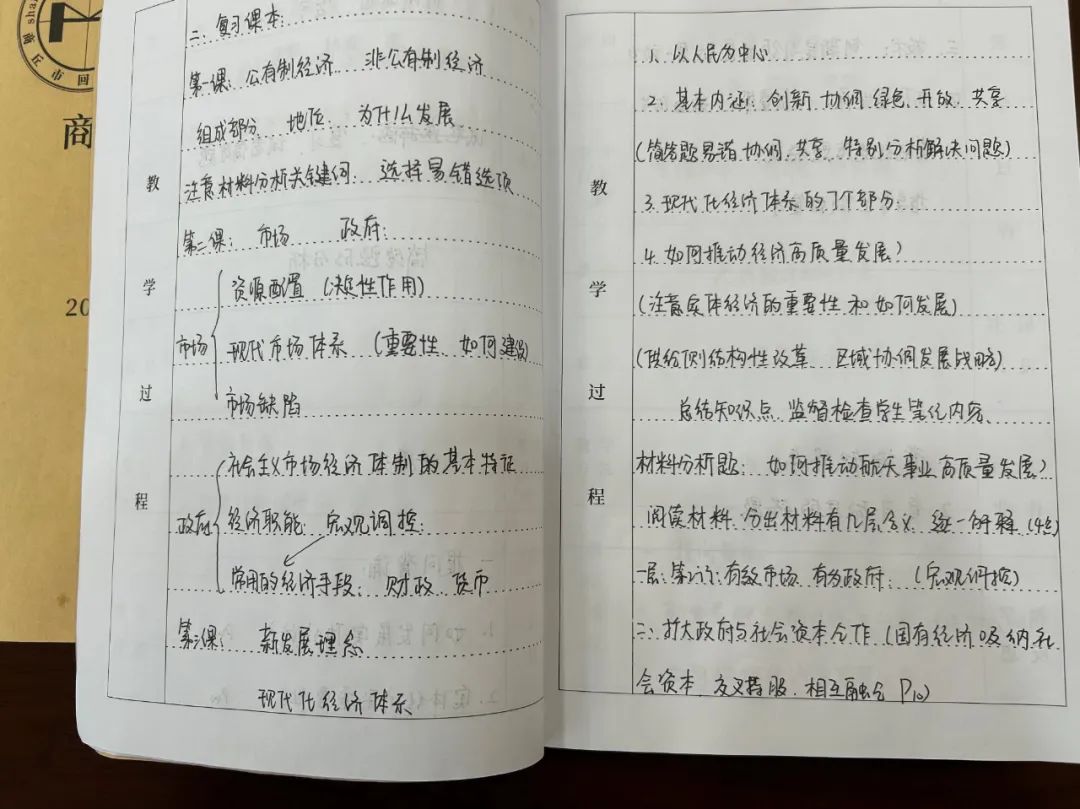 商
20
教学过程
二、复习课本:
第一课: 公有制经济 非公有制经济
组成部分 地位 为什么发展
注意材料分析关键词 选择易错选项
第二课: 市场 政府:
市场
资源配置 (决定性作用)
现代市场体系 (重要性 如何建设)
市场缺陷
政府
社会主义市场经济体制的基本特征
经济职能 宏观调控:
常用的经济手段: 财政 货币
第三课: 新发展理念
现代化经济体系
教学过程
1. 以人民为中心
2. 基本内涵: 创新 协调 绿色 开放 共享
(简答题易错 协调 共享 特别分析解决问题)
3. 现代化经济体系的7个部分
4. 如何推动经济高质量发展?
(注意实体经济的重要性 和如何发展)
(供给侧结构性改革 区域协调发展战略)
总结知识点 监督检查学生笔记内容
材料分析题: 如何推动航天事业高质量发展?
阅读材料 分出材料有几层含义 逐一解释 (4点)
一层: 第1个: 有效市场 有为政府: (宏观调控)
二: 扩大政府与社会资本合作 (国有经济吸纳社
会资本 交叉持股 相互融合 P10)